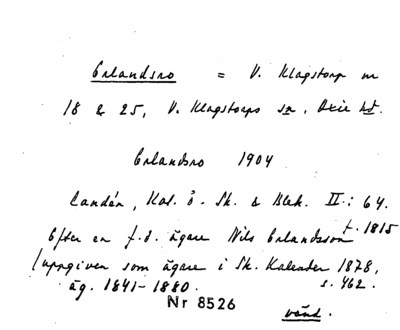 Erlandsro = V. Klagstorp nr
18 & 25, V. Klagstorps sn, Oxie hd.
Erlandsro 1904
Landén, Kat. ö. Sk. & Blek. II: 64.
Efter en f.d. ägare Nils Erlandsson f. 1815
(uppgiven som ägare i Sk. Kalender 1878,
äg. 1841-1880. s. 462.
Nr 8526
vänd.